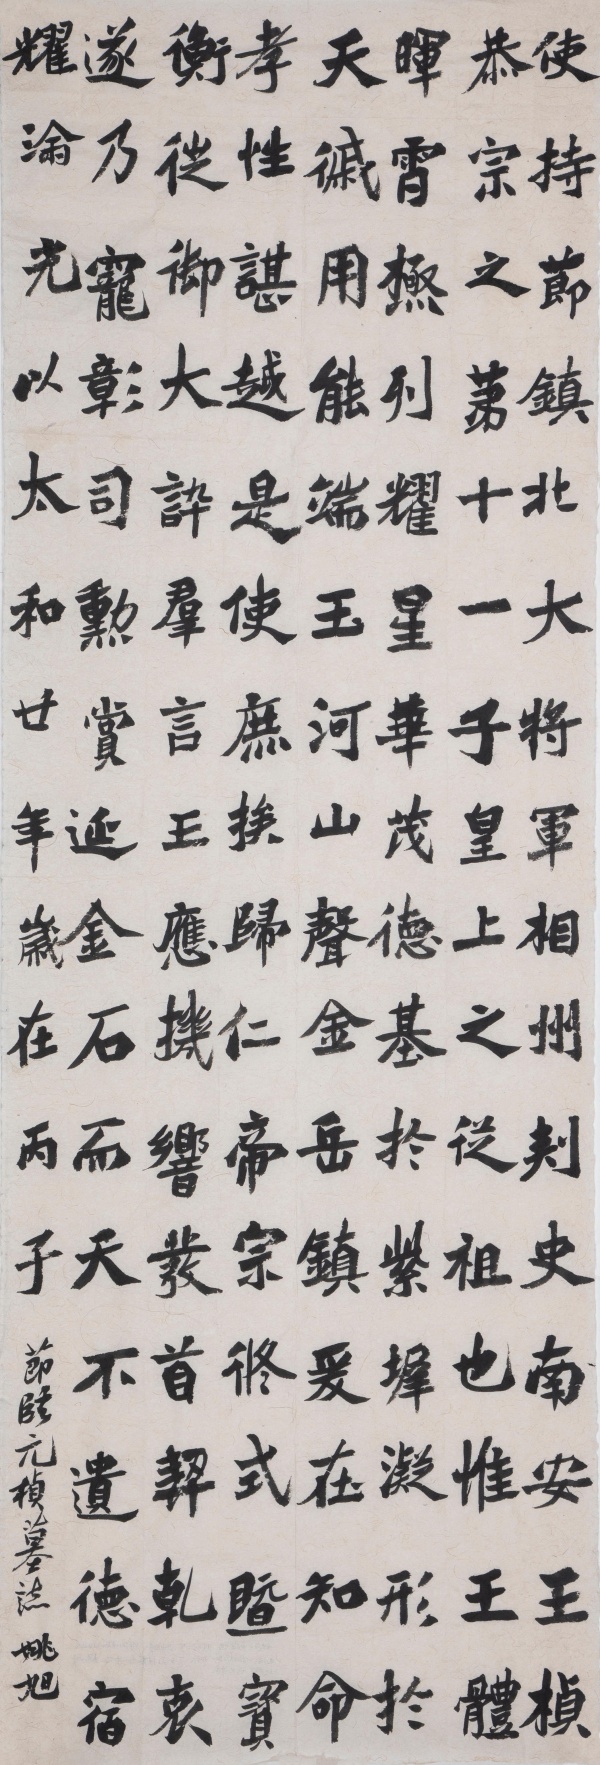 使持節鎮北大將軍相州刾史南安王楨
恭宗之苐十一子皇上之從祖也惟王體
暉霄極列耀星華茂德基於紫墀凝形於
天戚用能端玉河山聲金岳鎮爰在知命
孝性諶越是使庶族歸仁帝宗攸式暨寳
衡徙御大訸羣言王應機響發首契乾衷
遂乃寵彰司勲賞延金石而天不遺德宿
耀淪光以太和廿年歲在丙子
節臨元楨墓誌 姚旭